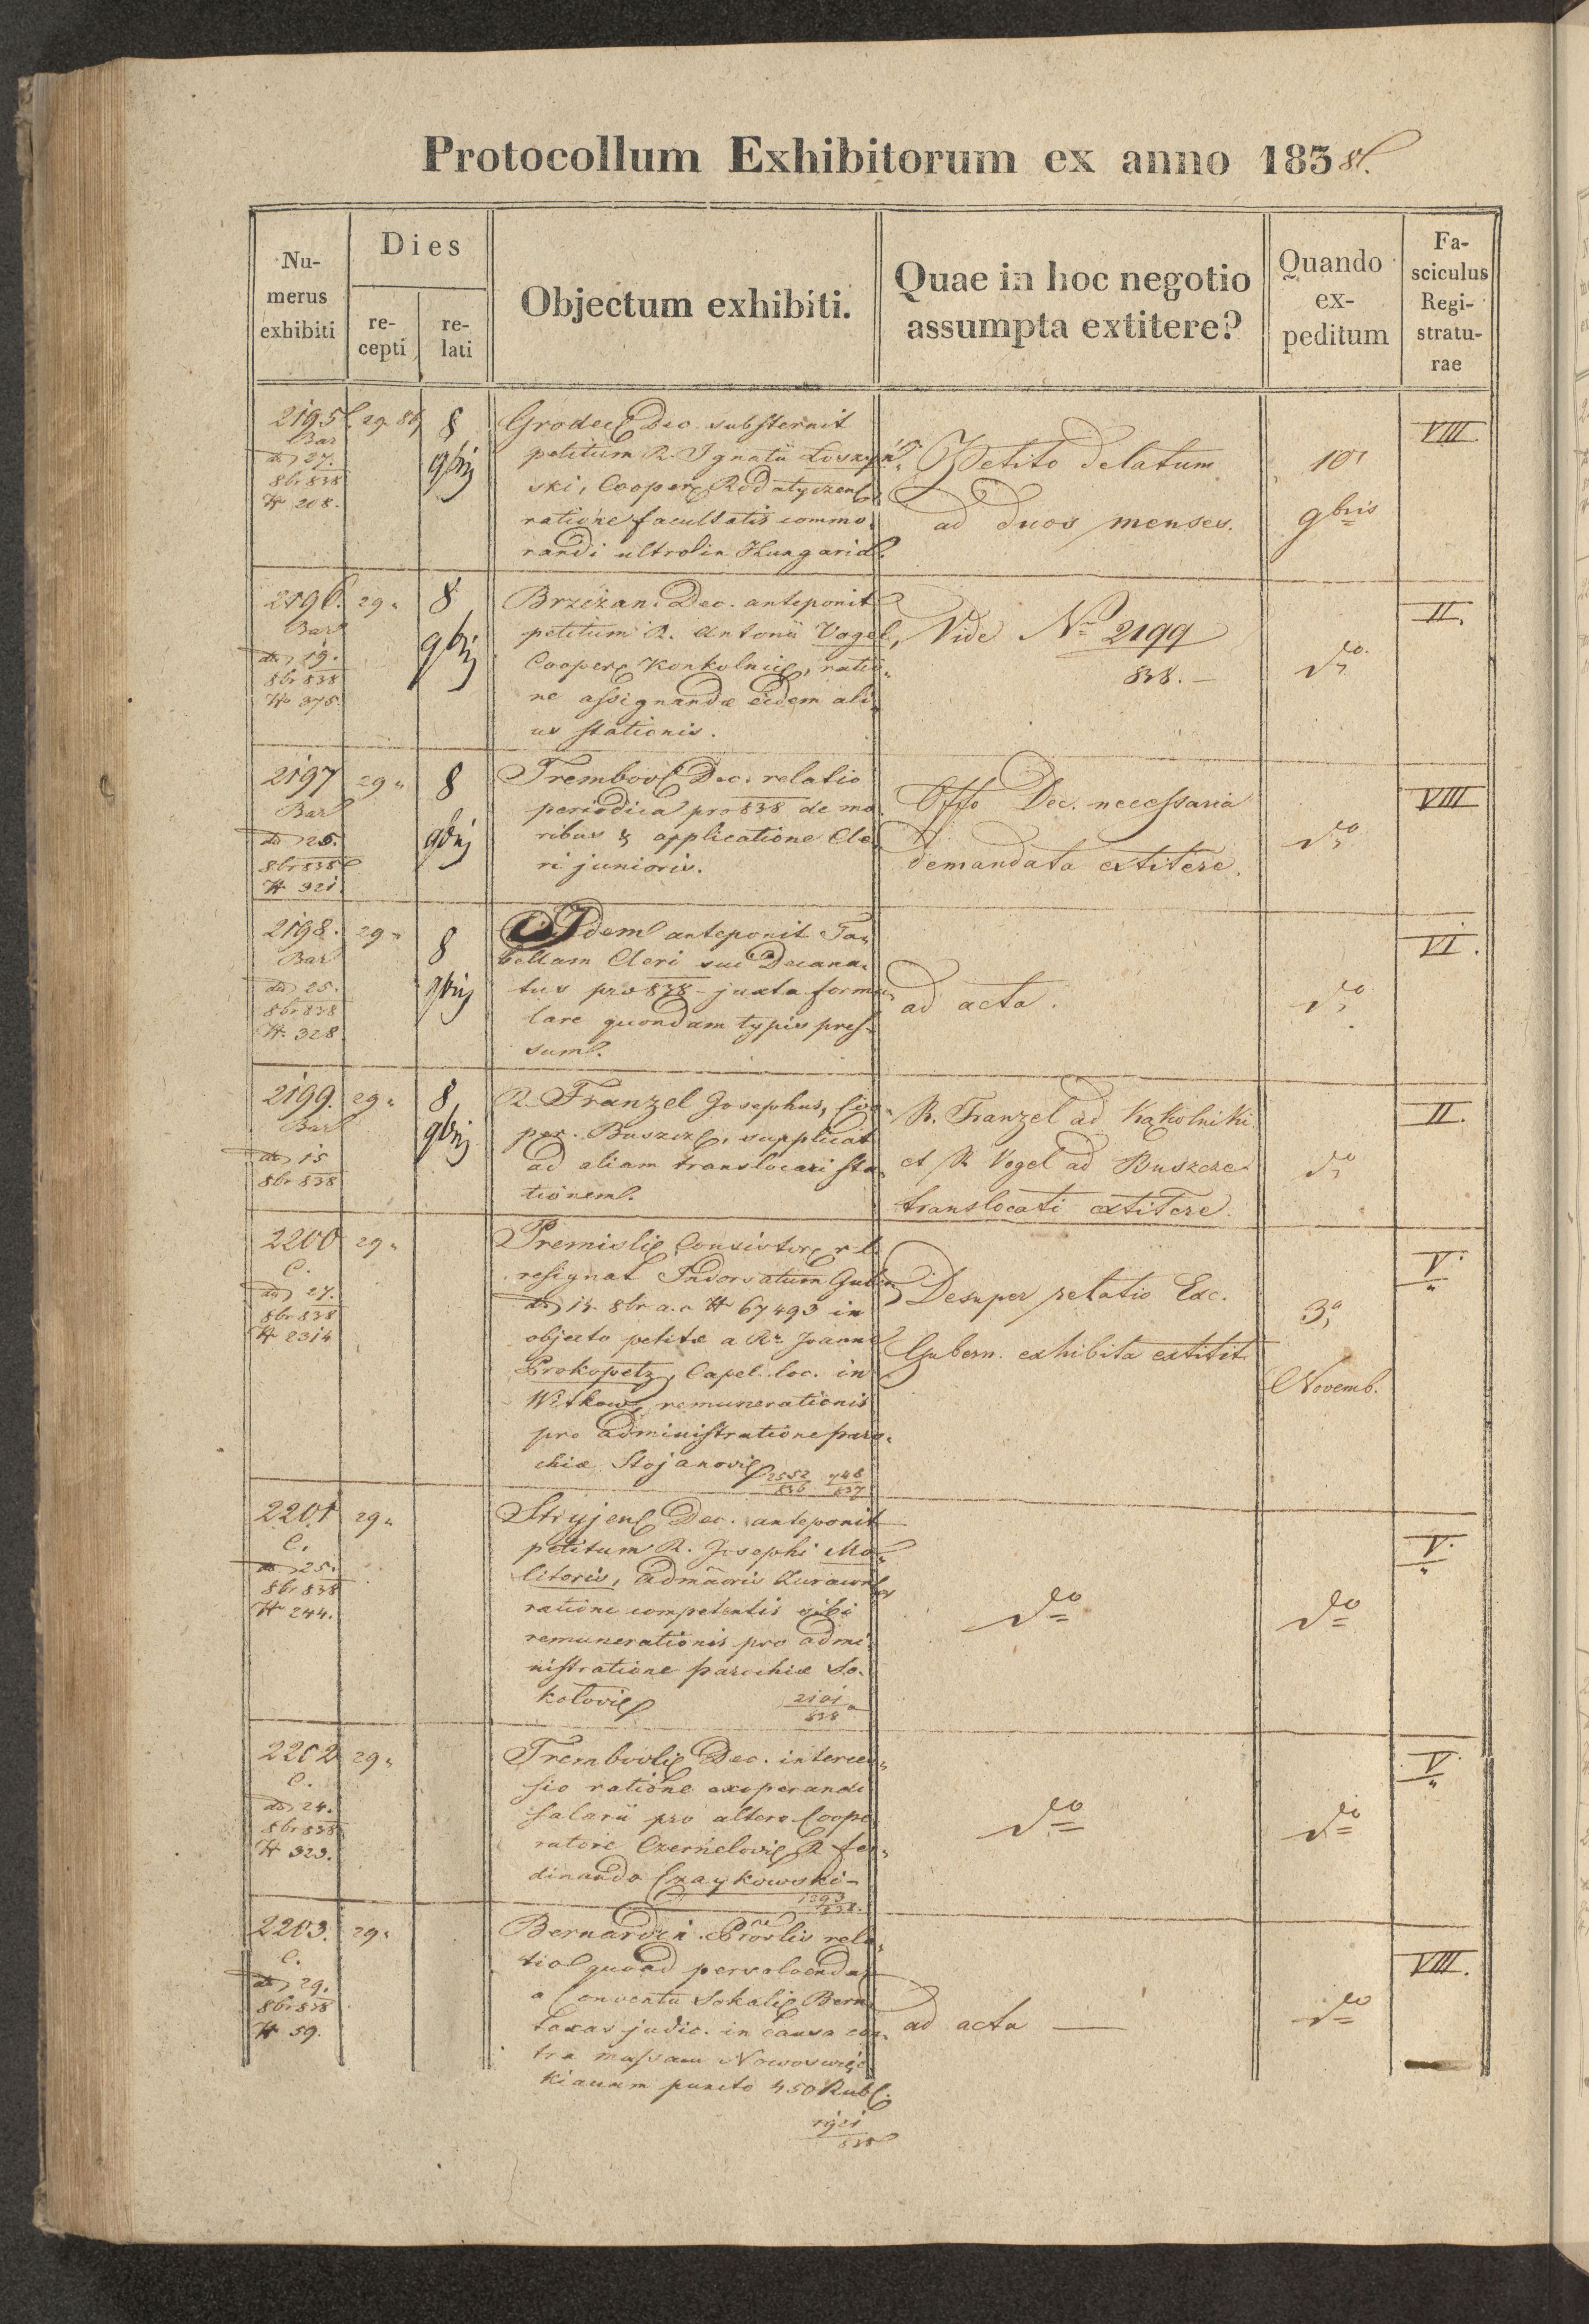 Protocollum Exhibitorum ex anno 1838.
Numerus exhibiti
Dies
recepti
relati
Objectum exhibiti.
Quae in hoc negotio assumpta extitere?
Quando expeditum
Fasciculus Registraturae
2195 29 8br 8
Bar
dd 27.
8br 838
# 208.
9brij
Grodec Dec. substernit
petitum R. Ignatii Loszyń-
ski, Cooper. Rodatyczen
ratione facultatis commo-
randi ultro in Hungaria.
Petito delatum
ad duos menses.
10
9bris
VIII
2196. 29 „ 8
Bar
dd 19.
8br 838
# 375.
9brij
Brzeżan. Dec. anteponit
petitum R. Antonii Vogel,
Cooper Konkolnic, ratio-
ne assignandæ eidem ali-
us stationis.
Vide No 2199
838. —
do
II.
2197 29 „ 8
Bar
dd 25.
8br 838
# 321.
9brij
Trembovl Dec. relatio
periodica pro 838 de mo-
ribus & applicatione Cle-
ri junioris.
Offo Dec. necessaria
demandata extitere.
do
VIII
2198. 29 „ 8
Bar
dd 25.
8br 838
# 328.
9brij
Idem anteponit Ta-
bellam Cleri sui Decana-
tus pro 838 - juxta formu-
lare quondam typis pres-
sum.
ad acta.
do
VI.
2199. 29 „ 8
Bar
dd 15
8br 838
9brij
R. Franzel Josephus, Coo-
per. Buszcz, supplicat
ad aliam translocari sta-
tionem.
R. Franzel ad Kąkolniki
et R. Vogel ad Buszcze
translocati extitere.
do
II.
2200 29 „
C.
dd 27.
8br 838
# 2314
Premislic Consistor r. l.
resignat Indorsatum Gub
dd 15. 8br a. c # 67493 in
objecto petitæ a Re Joanne
Prokopetz, Capel. loc. in
Witkow, remunerationis
pro administratione paro-
chiæ Stojanovic 2552/836 748/837
Desuper relatio Exc.
Gubern. exhibita extitit.
3
Novemb.
V.
2201 29 „
C.
dd 25.
8br 838
# 244.
Stryjen Dec. anteponit
petitum R. Josephi Mo-
litoris, admāoris
ratione competentis sibi
remunerationis pro admi-
nistratione parochiæ So-
kolovic 2101/838
do
do
V.
2202 29 „
C.
dd 24.
8br 838
# 323.
Trembovlic Dec. interces-
sio ratione exoperandi
salarii pro altero Coope-
ratore Czernelovic R. Fer-
dinando Czaykowski -
1393/838.
do
do
V.
2203. 29 „
C.
dd 29.
8br 838
# 59.
Bernardin. Provlis rela-
tio quoad persolvendas
a Conventu Sokalic Bern.
taxas judic. in causa con-
tra massam Nowoswiec-
kianam puncto 450 Rub.
1921/838
ad acta —
do
VIII.